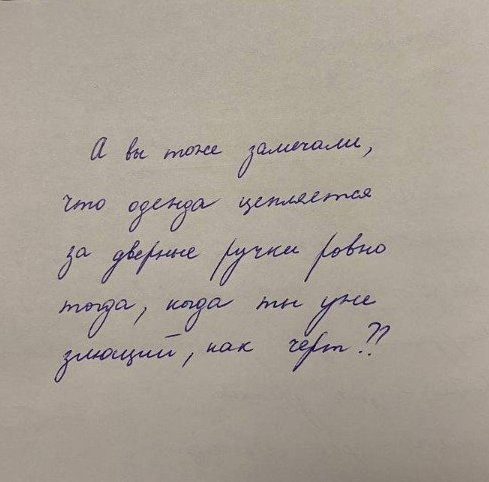 А вы тоже замечали,
что одежда цепляется
за дверные ручки ровно
тогда, когда ты уже
злющий, как черт??